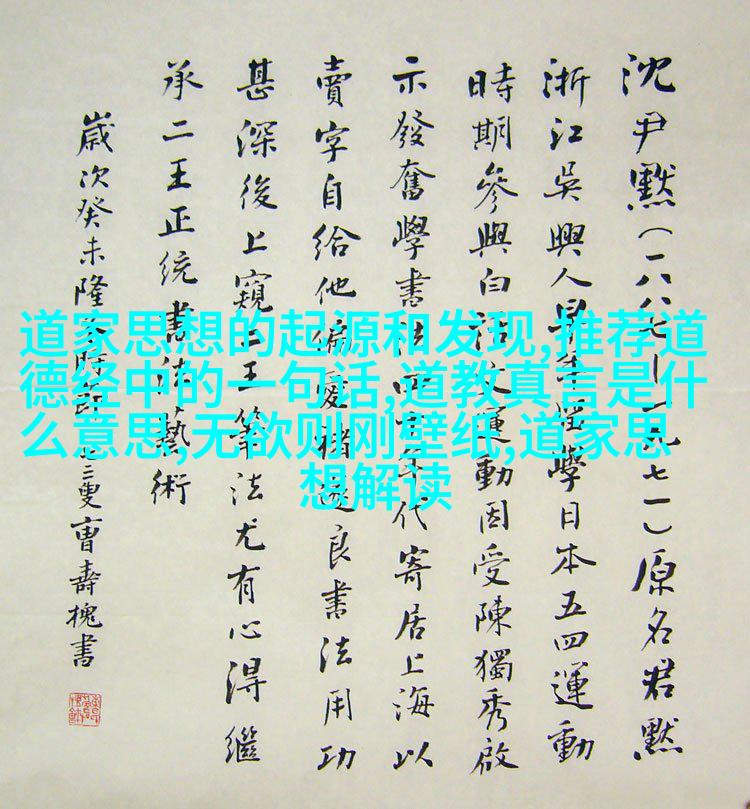 沈尹默(一八八七—一九七一)原名君默
浙江吳興人早學日本五四運動
時期參與白話文運動因受陳獨秀啟
示發奮學書法四十年代寄居上海以
賣字自給他偏愛褚遂良書法用功
甚深後上窺二王筆法尤有心得繼
承二王正统書法藝術
歲次癸未隆冬時節七三叟曹壽槐書
道家思想的起源和发现,推荐道
德经中的一句话,道教真言是什
么意思,无欲则刚壁纸,道家思
想解读